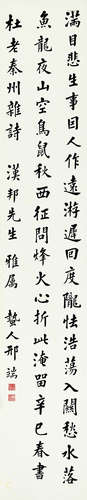 滿目悲生事因人作遠游遲回度隴怯浩蕩入關愁水落
魚龍夜山空鳥鼠秋西征問烽火心折此淹留辛巳春書
杜老秦州雜詩 漢邦先生 雅属 蟄人邢端